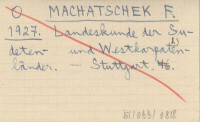 O MACHATSCHEK F.
1927. Landeskunde der Su-
deten- und Westkarpaten-
länder. — Stuttgart.